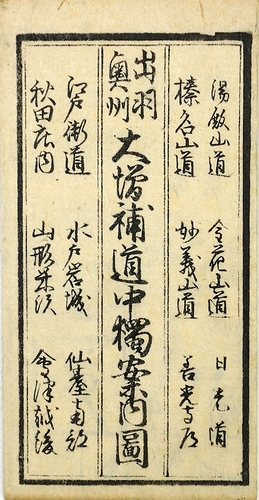 湯殿山道 金花山道 日光道
榛名山道 妙義山道 善光寺道
出羽
奥州
大増補道中獨案内圖
江戸街道 水戸岩城 仙臺南部
秋田庄内 山形米沢 會津越後